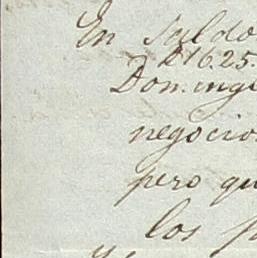 En Saldo
$16.25.
Domingo
negocio
pero qu
los p